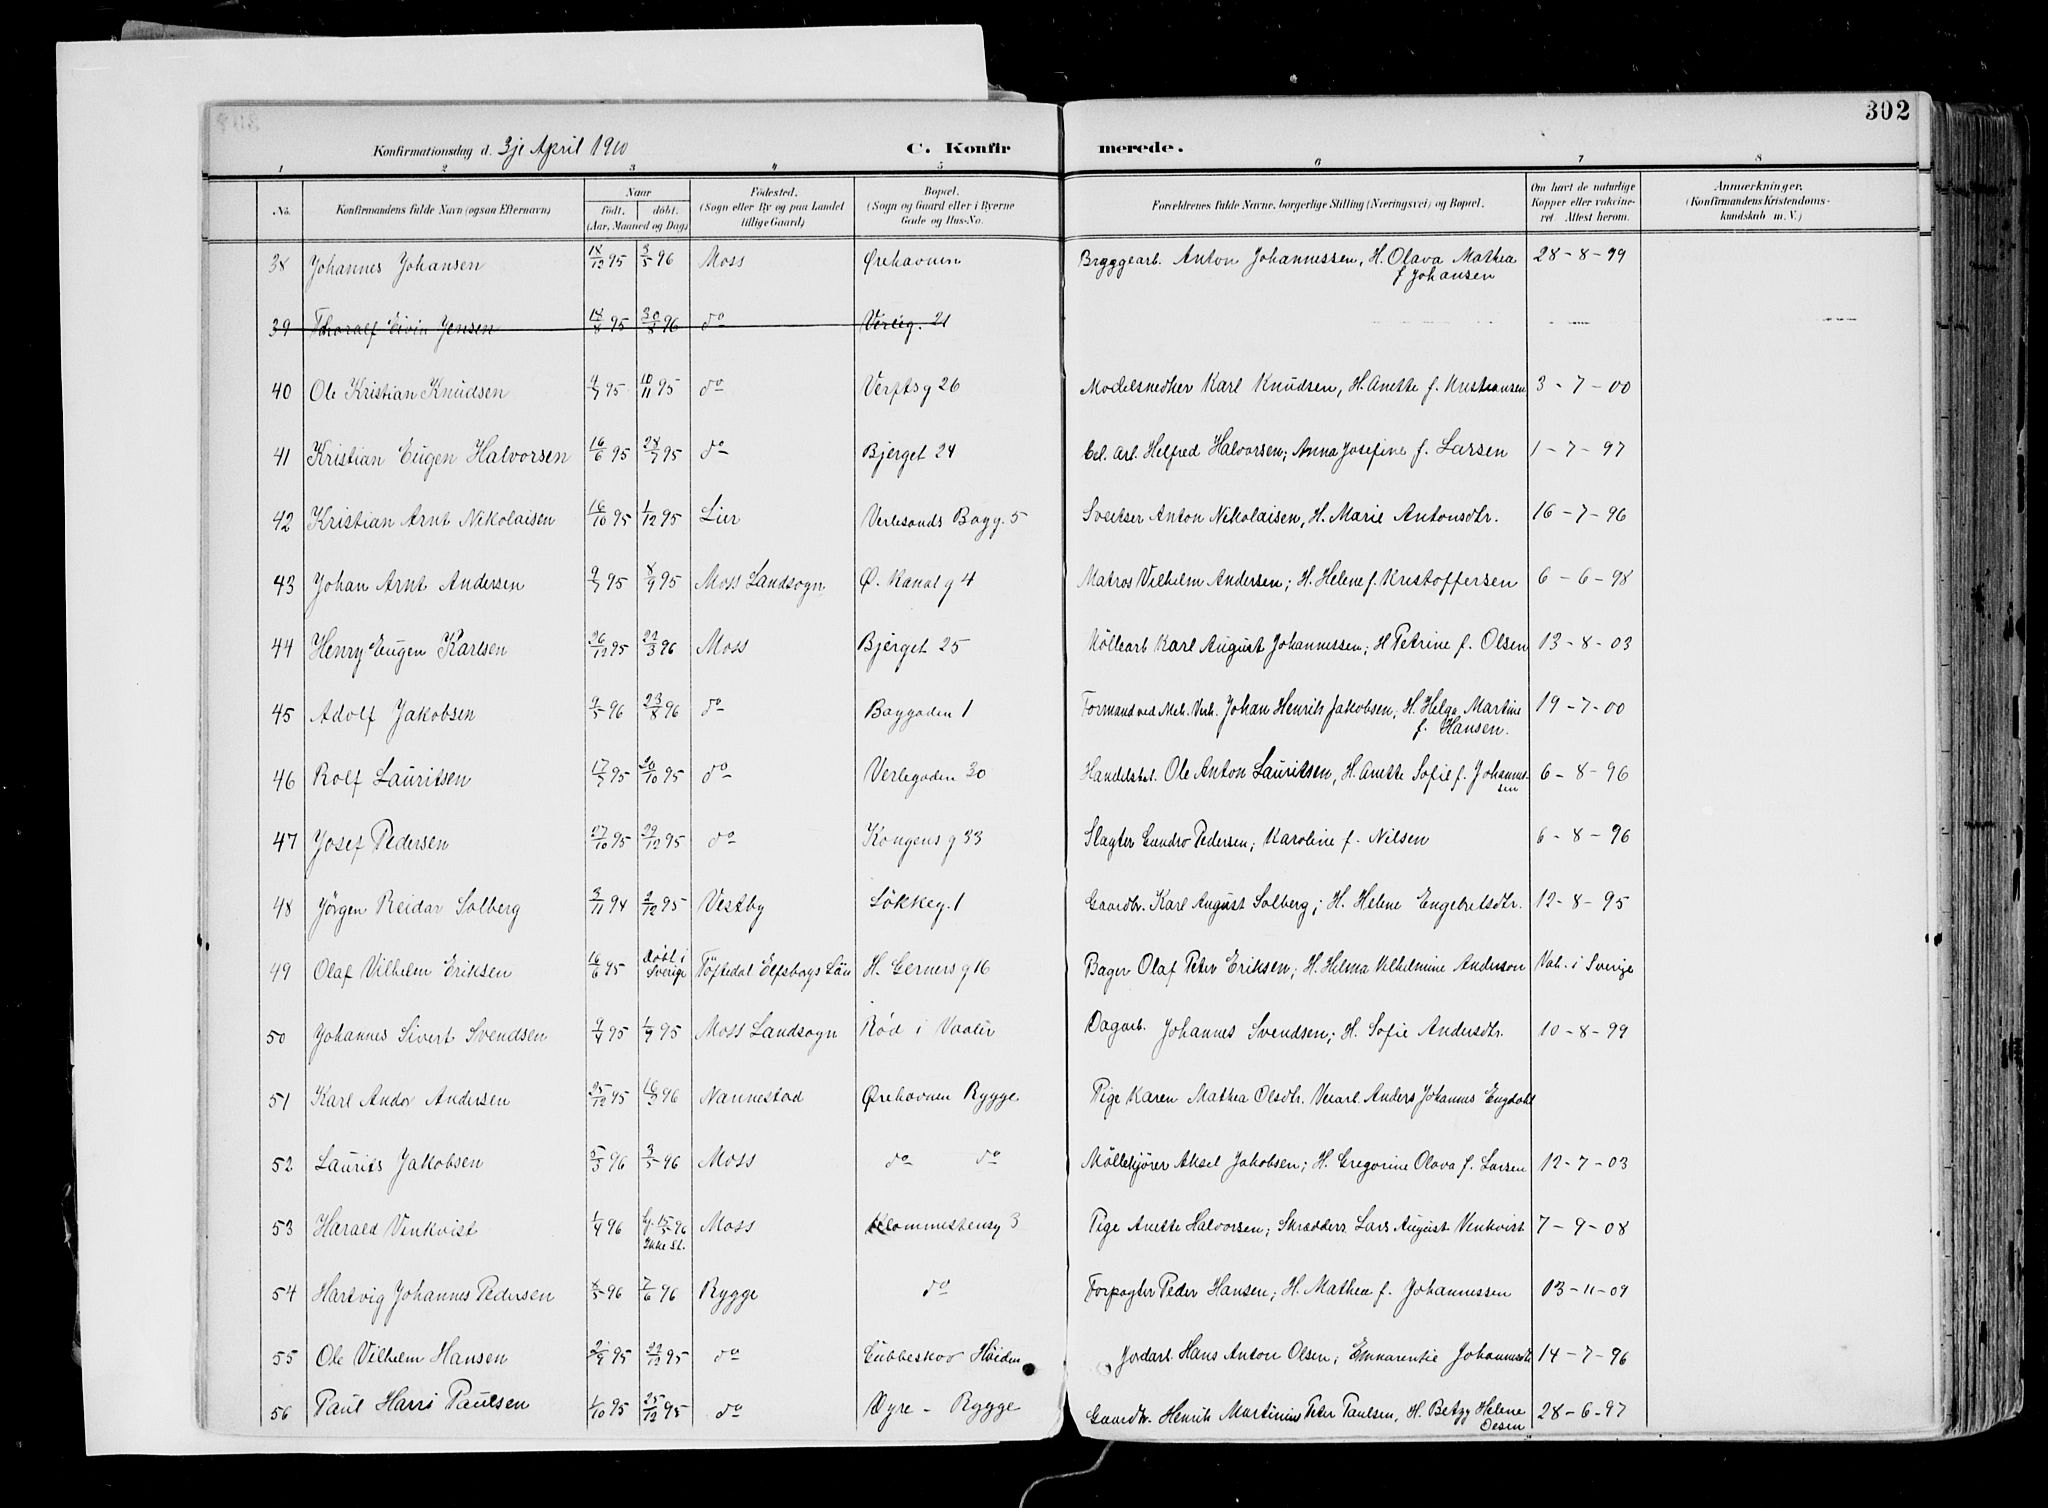 302
Konfirmationsdag d. 3je April 1910 C. Konfirmerede.
1 2 3 4 5 6 7 8
No. Konfirmandens fulde Navn (ogsaa Efternavn) Naar født. døbt. (Aar, Maaned og Dag) Fødested. (Sogn eller By og paa Landet tillige Gaard) Bopæl. (Sogn og Gaard eller i Byerne Gade og Hus-No. Forældrenes fulde Navne, borgerlige Stilling (Næringsvei) og Bopæl. Om havt de naturlige Kopper eller vakcineret. Attest herom. Anmærkninger. (Konfirmandens Kristendomskundskab m. V.)
38 Johannes Johansen 18/12 95 3/5 96 Moss Ørehavnen Bryggearb. Anton Johannessen, H. Olava Mathea f Johansen 28-8-99
39 Thoralf Eivin Jensen 18/8 95 30/8 96 do Verleg. 21
40 Ole Kristian Knudsen 9/7 95 10/11 95 do Verftsg 26 Modelsnedker Karl Knudsen, H. Anette f. Kristiansen 3-7-00
41 Kristian Eugen Halvorsen 16/6 95 28/7 95 do Bjerget 24 Cel. Arb. Helfred Halvorsen; Anna Josefine f. Larsen 1-7-97
42 Kristian Arnt Nikolaisen 16/10 95 1/12 95 Lier Verlesands Bagg. 5 Sveitser Anton Nikolaisen, H. Marie Antonsdtr. 16-7-96
43 Johan Arnt Andersen 9/7 95 8/9 95 Moss Landsogn Ø. Kanalg 4 Matros Vilhelm Andersen; H. Helene f. Kristoffersen 6-6-98
44 Henry Eugen Karlsen 26/12 95 22/3 96 Moss Bjerget 25 Møllearb Karl August Johannessen; H Petrine f. Olsen 13-8-03
45 Adolf Jakobsen 9/5 96 23/8 96 do Baggaden 1 Formand ved Mek. Verk. Johan Henrik Jakobsen; H. Helga Martine f. Hansen. 19-7-00
46 Rolf Lauritsen 17/7 95 20/10 95 do Verlegaden 30 Handelsbet. Ole Anton Lauritsen, H. Anette Sofie f. Johannessen 6-8-96
47 Josef Pedersen 27/10 95 29/12 95 do Kongensg 33 Slagter Gundro Pedersen; Karoline f. Nilsen 6-8-96
48 Jörgen Reidar Solberg 3/11 94 2/12 95 Vestby Løkkeg. 1 Gaardbr. Karl August Solberg; H. Helene Engebretsdtr. 12-8-95
49 Olaf Vilhelm Eriksen 16/6 95 Døbt i Sverige Töftedal Elfsborgs Län H. Gernersg 16 Bager Olaf Peter Eriksen; H. Hilma Vilhelmine Anderson Vak. i Sverige
50 Johannes Sivert Svendsen 9/4 95 1/9 95 Moss Landsogn Rød i Vaaler Dagarb. Johannes Svendsen; H. Sofie Andersdtr. 10-8-99
51 Karl Andor Andersen 25/12 95 16/3 96 Nannestad Ørehavnen Rygge. Pige Karen Mathea Olsdtr. Veiarb. Anders Johannes Engdahl
52 Laurits Jakobsen 5/3 96 3/5 96 Moss do do Møllekjører Aksel Jakobsen; H. Gregorine Olava f. Larsen 12-7-03
53 Harald Venkvist 1/4 96 15/5 96 Ikke St. Moss Klommestensg 3 Pige Anette Halvorsen; Skrædders. Lars August Venkvist 7-9-08
54 Hartvig Johannes Pedersen 8/5 96 7/6 96 Rygge do Forpagter Peder Hansen; H. Mathea f. Johannessen 13-11-09
55 Ole Vilhelm Hansen 2/9 95 22/12 95 do Gubbeskov Høiden Jordarb. Hans Anton Olsen; Emmarentie Johannesdtr 14-7-96
56 Paul Harri Paulsen 1/10 95 25/12 95 do Øyre - Rygge Gaardbr. Henrik Martinius Peter Paulsen, H. Betzy Helene Olsen 28-6-97